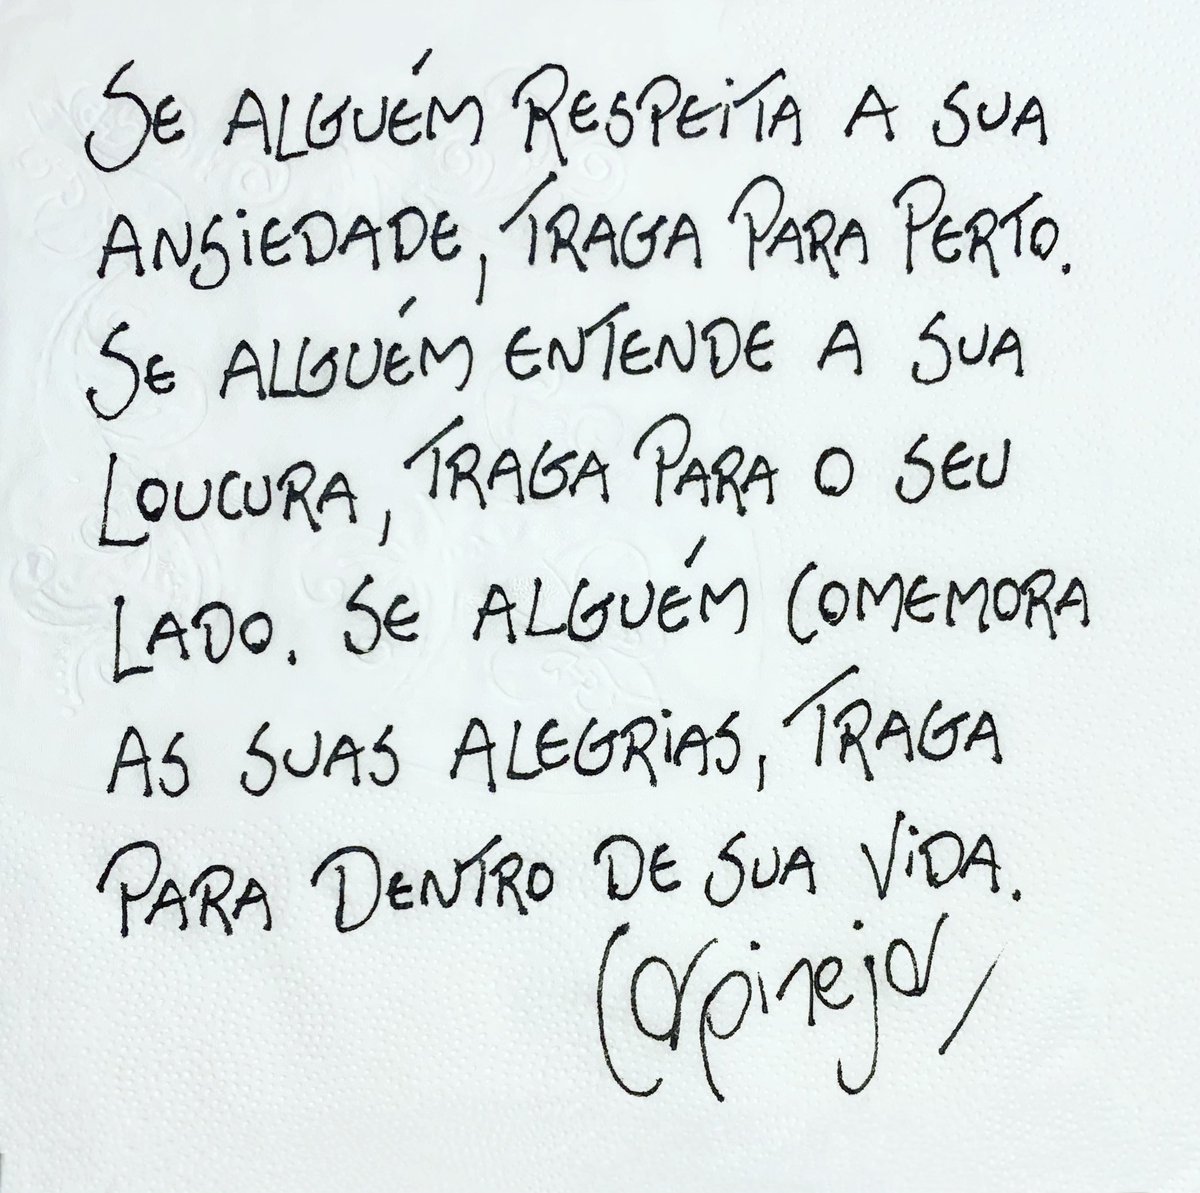 SE ALGUÉM RESPEITA A SUA
ANSIEDADE, TRAGA PARA PERTO.
SE ALGUÉM ENTENDE A SUA
LOUCURA, TRAGA PARA O SEU
LADO. SE ALGUÉM COMEMORA
AS SUAS ALEGRIAS, TRAGA
PARA DENTRO DE SUA VIDA.
Carpinejar